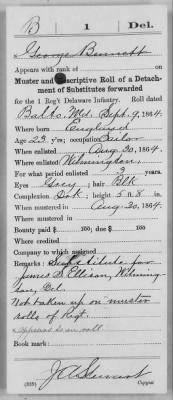 B | 1 | Del.
George Bennett
Appears with rank of
on
Muster and Descriptive Roll of a Detach-
ment of Substitutes forwarded
for the 1 Reg't Delaware Infantry. Roll dated
Balto, Md, Sept. 9, 1864.
Where born England
Age 22 y'rs; occupation Sailor
When enlisted Aug 30, 1864.
Where enlisted Wilmington,
For what period enlisted 3 years.
Eyes Grey; hair Blk
Complexion Dark; height 5 ft. 8 in.
When mustered in Aug 30, 1864.
Where mustered in
Bounty paid $ 100; due $ 100
Where credited
Company to which assigned
Remarks: Substitute for
James S. Ellison, Wilming-
ton, Del.
Not taken up on muster
rolls of Regt.
Appears on roll
Book mark:
J A Stewart
(339) Copyist.